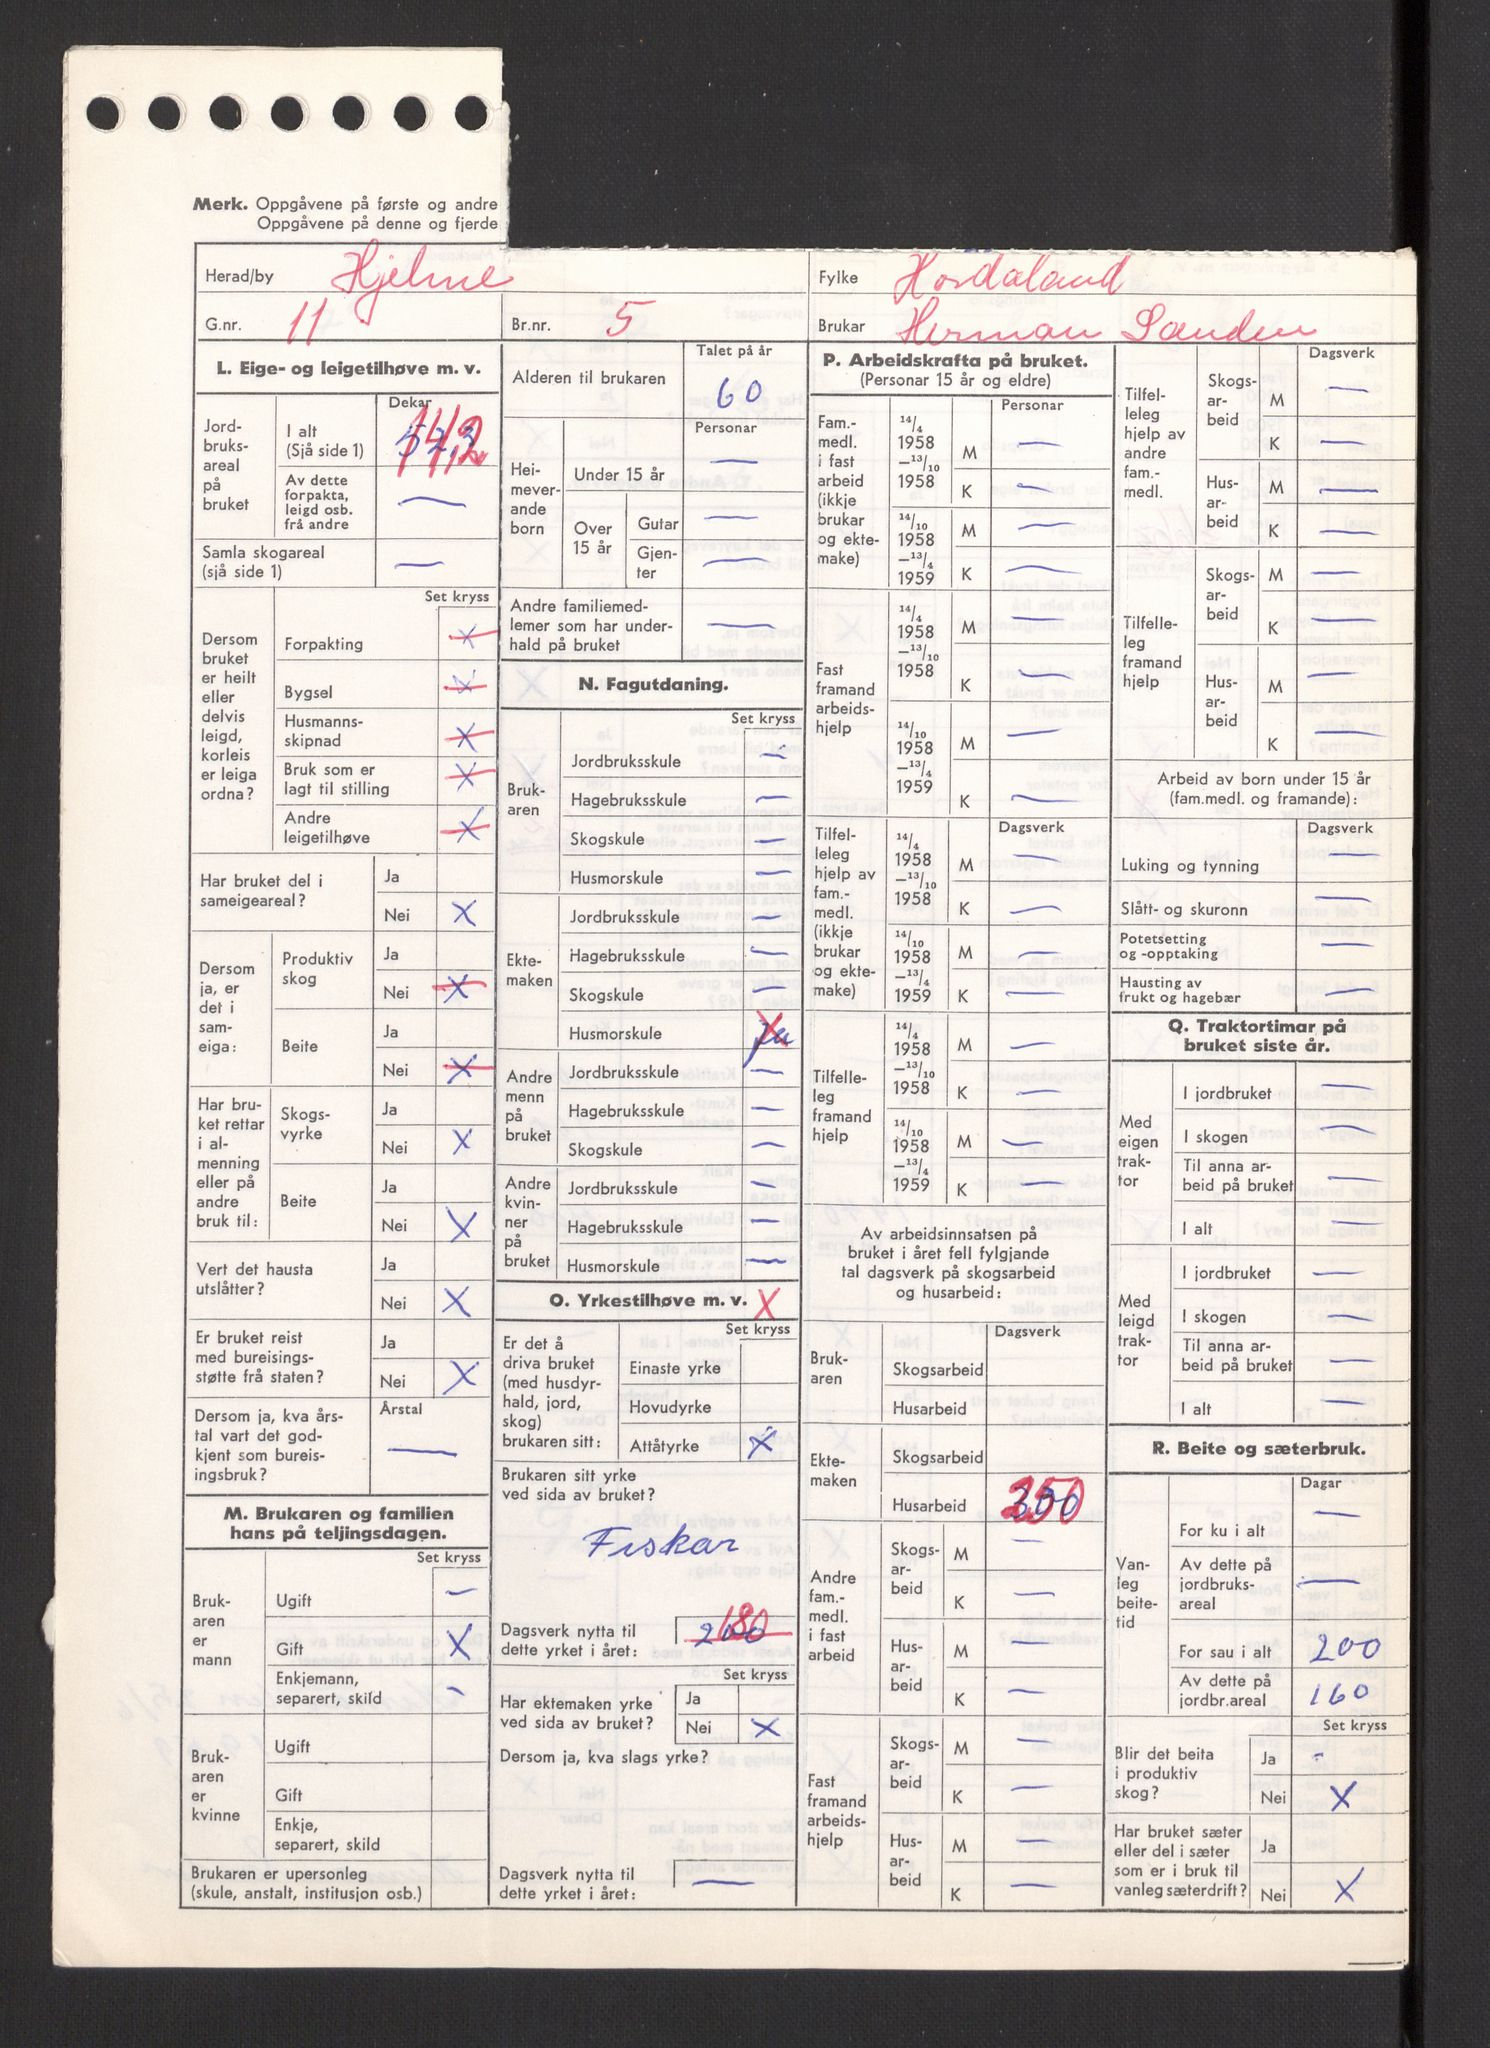 Merk. Oppgåvene på første og andre
Oppgåvene på denne og fjerde
Herad/by Hjelme
Fylke Hordaland
G.nr. 11
Br.nr. 5
Brukar Herman Sanden
L. Eige- og leigetilhøve m. v.
Dekar
Jord-
bruks-
areal
på
bruket
I alt
(Sjå side 1)
Av dette
forpakta,
leigd osb.
frå andre —
Samla skogareal
(sjå side 1) —
Set kryss
Dersom
bruket
er heilt
eller
delvis
leigd,
korleis
er leiga
ordna?
Forpakting X
Bygsel X
Husmanns-
skipnad X
Bruk som er
lagt til stilling X
Andre
leigetilhøve X
Har bruket del i
sameigeareal?
Ja
Nei X
Dersom
ja, er
det i
sam-
eiga:
Produktiv
skog
Ja
Nei X
Beite
Ja
Nei X
Har bru-
ket rettar
i al-
menning
eller på
andre
bruk til:
Skogs-
vyrke
Ja
Nei X
Beite
Ja
Nei X
Vert det hausta
utslåtter?
Ja
Nei X
Er bruket reist
med bureisings-
støtte frå staten?
Ja
Nei X
Dersom ja, kva års-
tal vart det god-
kjent som bureis-
ingsbruk?
Årstal
—
M. Brukaren og familien
hans på teljingsdagen.
Set kryss
Bruk-
aren
er
mann
Ugift —
Gift X
Enkjemann,
separert, skild —
Bruk-
aren
er
kvinne
Ugift
Gift
Enkje,
separert, skild
Brukaren er upersonleg
(skule, anstalt, institusjon osb.)
Talet på år
Alderen til brukaren 60
Personar
Hei-
mever-
ande
born
Under 15 år —
Over
15 år
Gutar —
Gjen-
ter —
Andre familiemed-
lemer som har under-
hald på bruket —
N. Fagutdaning.
Set kryss
Bruk-
aren
Jordbruksskule —
Hagebruksskule —
Skogskule —
Husmorskule —
Ekte-
maken
Jordbruksskule —
Hagebruksskule —
Skogskule —
Husmorskule ja X
Andre
menn
på
bruket
Jordbruksskule —
Hagebruksskule —
Skogskule —
Andre
kvin-
ner
på
bruket
Jordbruksskule —
Hagebruksskule —
Husmorskule —
O. Yrkestilhøve m. v. X
Set kryss
Er det å
driva bruket
(med husdyr-
hald, jord,
skog)
brukaren sitt:
Einaste yrke
Hovudyrke
Attåtyrke X
Brukaren sitt yrke
ved sida av bruket?
Fiskar
Dagsverk nytta til
dette yrket i året: 200 180
Set kryss
Har ektemaken yrke
ved sida av bruket?
Ja
Nei X
Dersom ja, kva slags yrke?
Dagsverk nytta til
dette yrket i året: —
P. Arbeidskrafta på bruket.
(Personar 15 år og eldre)
Personar
Fam.-
medl.
i fast
arbeid
(ikkje
brukar
og ekte-
make)
14/4
1958
—13/10
1958
M —
K —
14/10
1958
—13/4
1959
M —
K —
Fast
framand
arbeids-
hjelp
14/4
1958
—13/10
1958
M —
K —
14/10
1958
—13/4
1959
M —
K —
Dagsverk
Tilfel-
leleg
hjelp av
fam.-
medl.
(ikkje
brukar
og ekte-
make)
14/4
1958
—13/10
1958
M —
K —
14/10
1958
—13/4
1959
M —
K —
Tilfelle-
leg
framand
hjelp
14/4
1958
—13/10
1958
M —
K —
14/10
1958
—13/4
1959
M —
K —
Av arbeidsinnsatsen på
bruket i året fell fylgjande
tal dagsverk på skogsarbeid
og husarbeid:
Dagsverk
Bruk-
aren
Skogsarbeid
Husarbeid
Ekte-
maken
Skogsarbeid
Husarbeid
Andre
fam.-
medl.
i fast
arbeid
Skogs-
ar-
beid
M —
K —
Hus-
ar-
beid
M —
K —
Fast
framand
arbeids-
hjelp
Skogs-
ar-
beid
M —
K —
Hus-
ar-
beid
M —
K —
Dagsverk
Tilfel-
leleg
hjelp av
andre
fam.-
medl.
Skogs-
ar-
beid
M —
K —
Hus-
ar-
beid
M —
K —
Tilfelle-
leg
framand
hjelp
Skogs-
ar-
beid
M —
K —
Hus-
ar-
beid
M —
K —
Arbeid av born under 15 år
(fam.medl. og framande):
Dagsverk
Luking og tynning —
Slått- og skuronn —
Potetsetting
og -opptaking —
Hausting av
frukt og hagebær —
Q. Traktortimar på
bruket siste år.
Med
eigen
trak-
tor
I jordbruket —
I skogen —
Til anna ar-
beid på bruket —
I alt —
Med
leigd
trak-
tor
I jordbruket —
I skogen —
Til anna ar-
beid på bruket —
I alt —
R. Beite og sæterbruk.
Dagar
Van-
leg
beite-
tid
For ku i alt —
Av dette på
jordbruks-
areal —
For sau i alt 200
Av dette på
jordbr.areal 160
Set kryss
Blir det beita
i produktiv
skog?
Ja —
Nei X
Har bruket sæter
eller del i sæter
som er i bruk til
vanleg sæterdrift?
Ja
Nei X